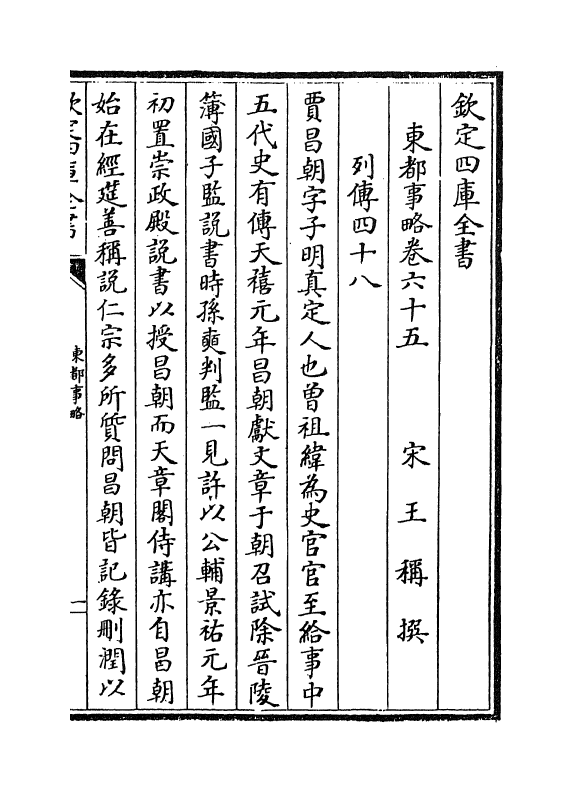 欽定四庫全書
東都事略卷六十五 宋 王 稱 撰
列傳四十八
賈昌朝字子明真定人也曽祖緯為史官官至給事中
五代史有傳天禧元年昌朝獻文章于朝召試除晉陵
簿國子監說書時孫奭判監一見許以公輔景祐元年
初置崇政殿說書以授昌朝而天章閣侍講亦自昌朝
始在經筵善稱說仁宗多所質問昌朝皆記錄刪潤以
欽定四庫全書
東都事略
一